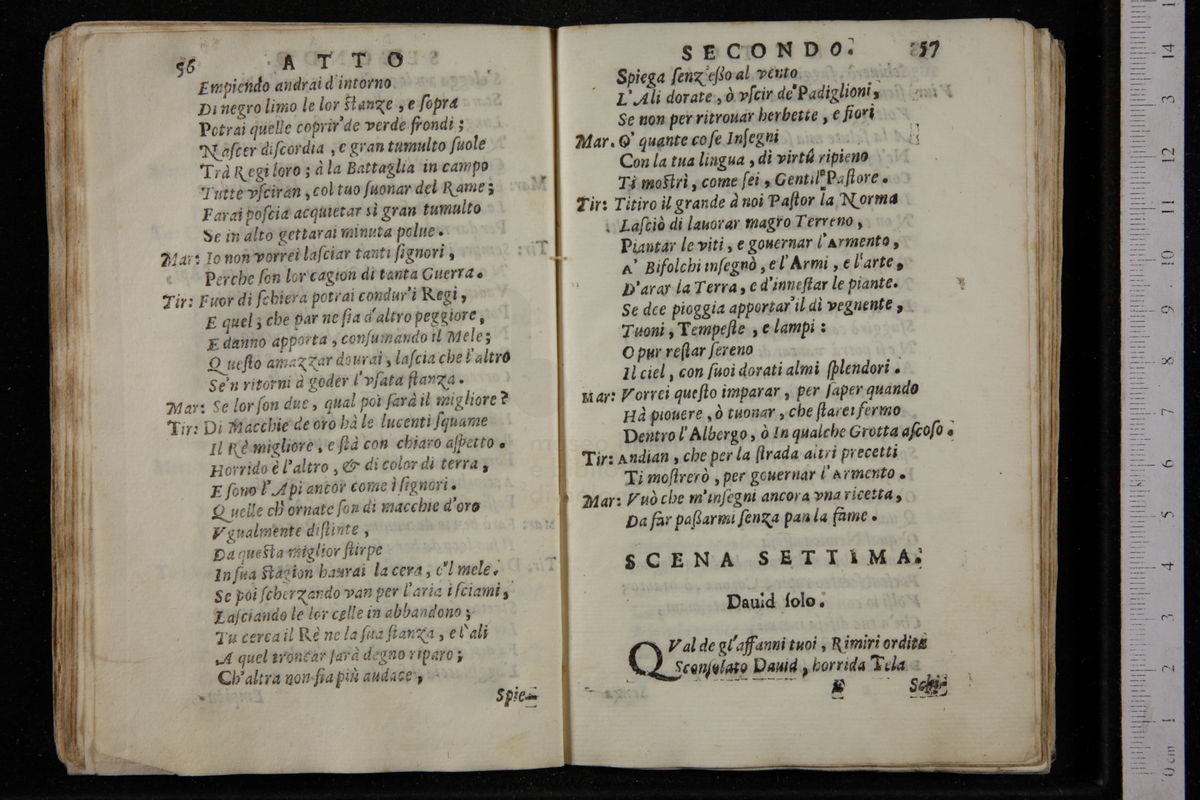 56 ATTO
Empiendo andrai d'intorno
Di negro limo le lor ſtanze, e ſopra
Potrai quelle coprir'de verde frondi;
Naſcer diſcordia, e gran tumulto ſuole
Trà Regi loro; à la Battaglia in campo
Tutte vſciran, col tuo ſuonar del Rame;
Farai poſcia acquietar sì gran tumulto
Se in alto gettarai minuta polue.
Mar: Io non vorrei laſciar tanti ſignori,
Perche ſon lor cagion di tanta Guerra.
Tir: Fuor di ſchiera potrai condur'i Regi,
E quel; che par ne ſia d'altro peggiore,
E danno apporta, conſumando il Mele;
Queſto amazzar dourai, laſcia che l'altro
Se'n ritorni à goder l'vſata ſtanza.
Mar: Se lor ſon due, qual poi ſarà il migliore?
Tir: Di Macchie de oro hà le lucenti ſquame
Il Rè migliore, e ſtà con chiaro aſpetto.
Horrido è l'altro, & di color di terra,
E ſono l'Api ancor come i ſignori.
Quelle ch'ornate ſon di macchie d'oro
Vgualmente diſtinte,
Da queſta miglior ſtirpe
In ſua ſtagion haurai la cera, e'l mele.
Se poi ſcherzando van per l'aria i ſciami,
Laſciando le lor celle in abbandono;
Tu cerca il Rè ne la ſua ſtanza, e l'ali
A quel troncar ſarà degno riparo;
Ch'altra non ſia più audace,
Spie-
SECONDO. 57
Spiega ſenz'eßo al vento
L'Ali dorate, ò vſcir de'Padiglioni,
Se non per ritrouar herbette, e fiori
Mar. O' quante coſe Inſegni
Con la tua lingua, di virtù ripieno
Ti moſtri, come ſei, Gentil Paſtore.
Tir: Titiro il grande à noi Paſtor la Norma
Laſciò di lauorar magro Terreno,
Piantar le viti, e gouernar l'Armento,
A' Bifolchi inſegnò, e l'Armi, e l'arte,
D'arar la Terra, e d'inneſtar le piante.
Se dee pioggia apportar'il dì vegnente,
Tuoni, Tempeſte, e lampi:
O pur reſtar ſereno
Il ciel, con ſuoi dorati almi ſplendori.
Mar: Vorrei queſto imparar, per ſaper quando
Hà piouere, ò tuonar, che ſtarei fermo
Dentro l'Albergo, ò In qualche Grotta aſcoſo.
Tir: Andian, che per la ſtrada altri precetti
Ti moſtrerò, per gouernar l'Armento.
Mar: Vuò che m'inſegni ancora vna ricetta,
Da far paßarmi ſenza pan la fame.
SCENA SETTIMA.
Dauid ſolo.
QVal de gl'affanni tuoi, Rimiri ordita
Sconſolato Dauid, horrida Tela
Schi-